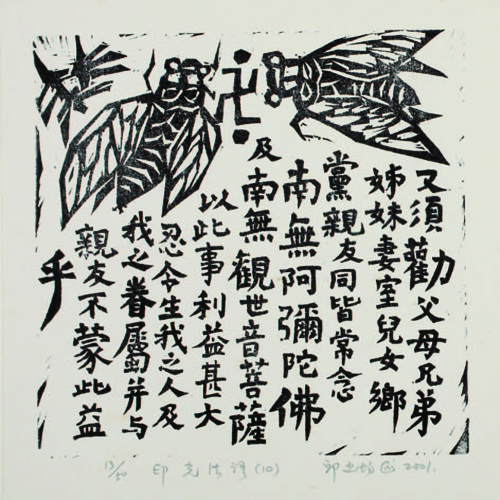 又須勸父母兄弟
姊妹妻室兒女鄉
黨親友同皆常念
南無阿彌陀佛
及
南無觀世音菩薩
以此事利益甚大
忍令生我之人及
我之眷屬并与
親友不蒙此益
乎
卍
印光法語(10)
2001.